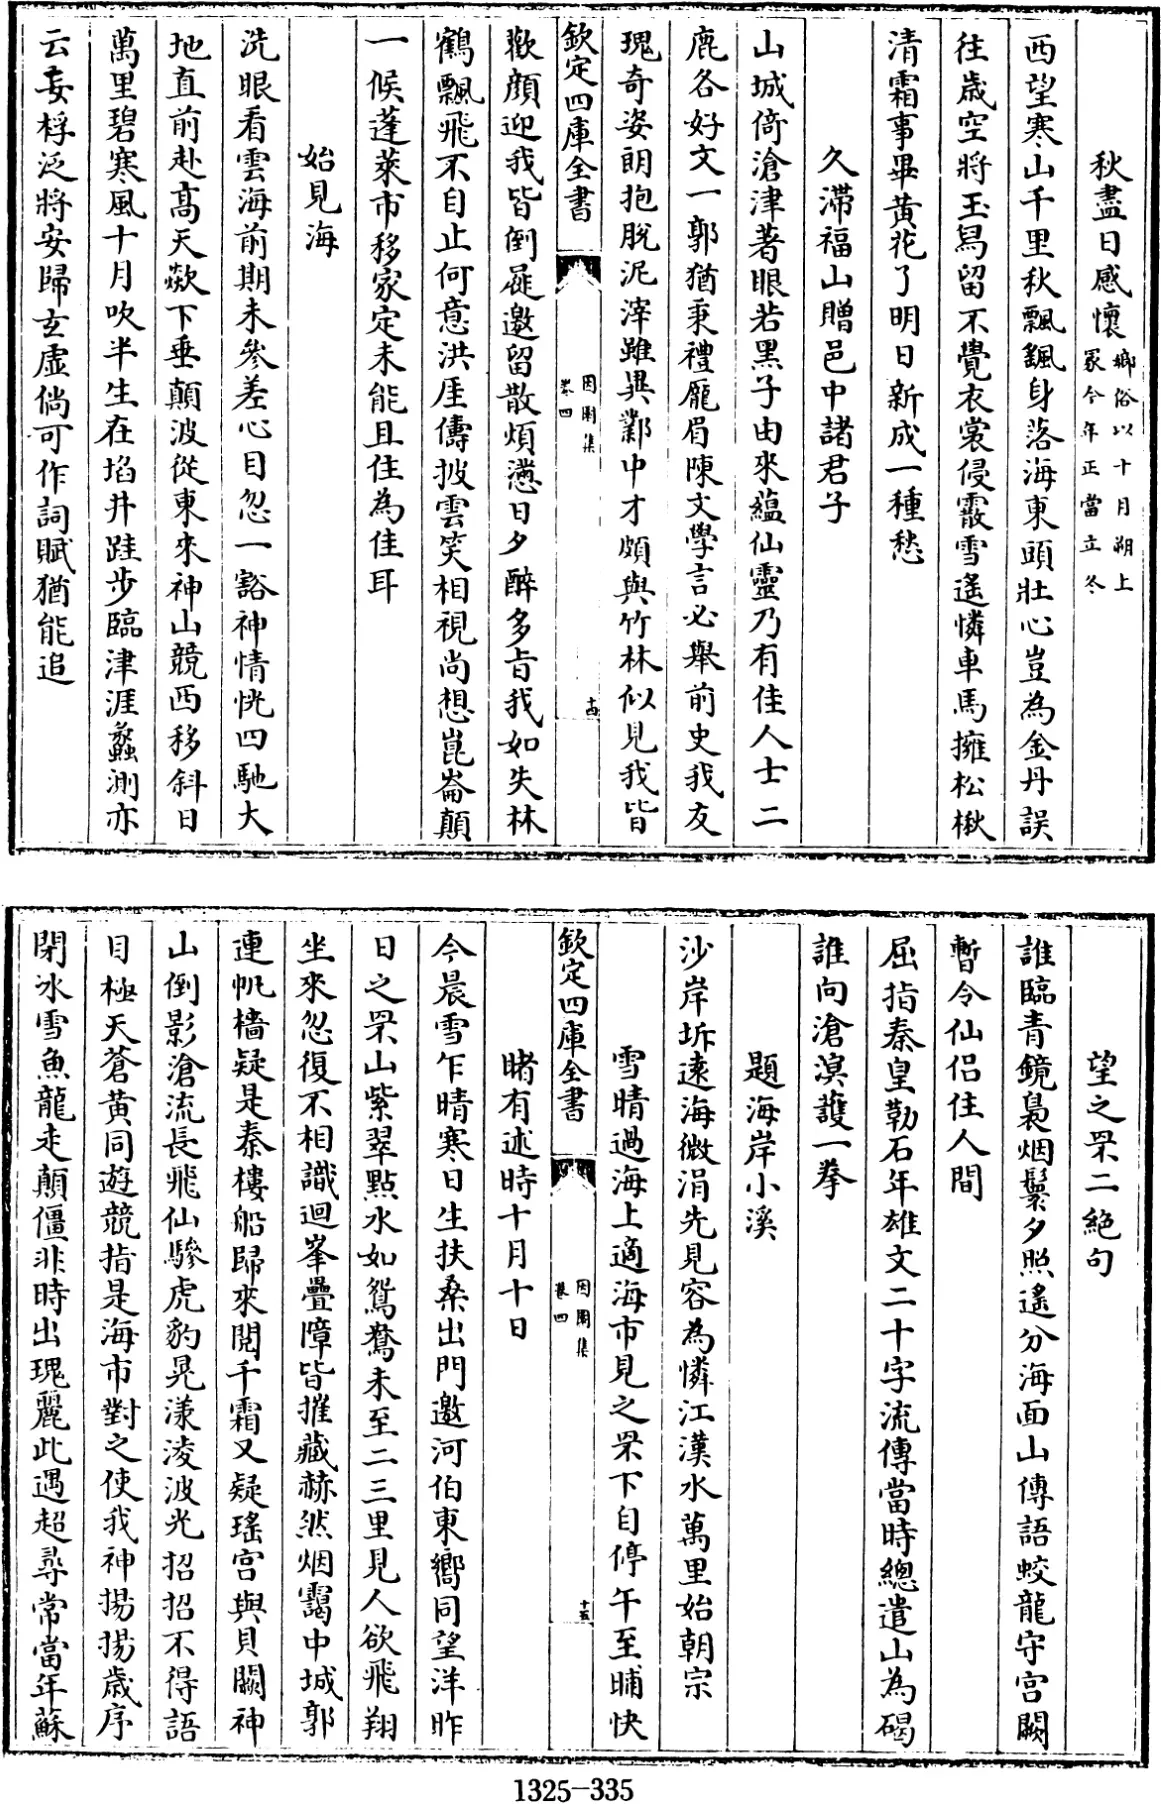 秋盡日感懷鄉俗以十月朔上
冢今年正當立冬
西望寒山千里秋飄飄身落海東頭壯心豈為金丹誤
往歲空將玉舄留不覺衣裳侵霰雪遙憐車馬擁松楸
清霜事畢黃花了明日新成一種愁
久滯福山贈邑中諸君子
山城倚滄津著眼若黑子由來藴仙靈乃有佳人士二
鹿各好文一郭猶秉禮龎眉陳文學言必舉前史我友
瑰奇姿朗抱脫泥滓雖異鄴中才頗與竹林似見我皆
欽定四庫全書
因園集
卷四
十四
歡顔迎我皆倒屣邀留散煩懣日夕醉多旨我如失林
鶴飄飛不自止何意洪厓儔披雲笑相視尚想崑崙顛
一候蓬萊市移家定未能且住為佳耳
始見海
洗眼看雲海前期未參差心目忽一豁神情恍四馳大
地直前赴高天歘下垂顛波從東來神山競西移斜日
萬里碧寒風十月吹半生在埳井跬步臨津涯蠡測亦
云妄桴泛將安歸玄虛倘可作詞賦猶能追
望之罘二絕句
誰臨青鏡裊烟鬟夕照遙分海面山傳語蛟龍守宫闕
暫令仙侣住人間
屈指秦皇勒石年雄文二十字流傳當時總遣山為碣
誰向滄溟護一拳
題海岸小溪
沙岸坼遠海微涓先見容為憐江漢水萬里始朝宗
雪晴過海上適海市見之罘下自停午至晡快
欽定四庫全書
因園集
卷四
十五
睹有述時十月十日
今晨雪乍晴寒日生扶桑出門邀河伯東嚮同望洋昨
日之罘山紫翠點水如鴛鴦未至二三里見人欲飛翔
坐來忽復不相識迴峯疊嶂皆摧藏赫然烟靄中城郭
連帆檣疑是秦樓船歸來閲千霜又疑瑤宫與貝闕神
山倒影滄流長飛仙驂虎豹晃漾淩波光招招不得語
目極天蒼黃同遊競指是海市對之使我神揚揚歲序
閉冰雪魚龍走顛僵非時出瑰麗此遇超尋常當年蘇
1325-335